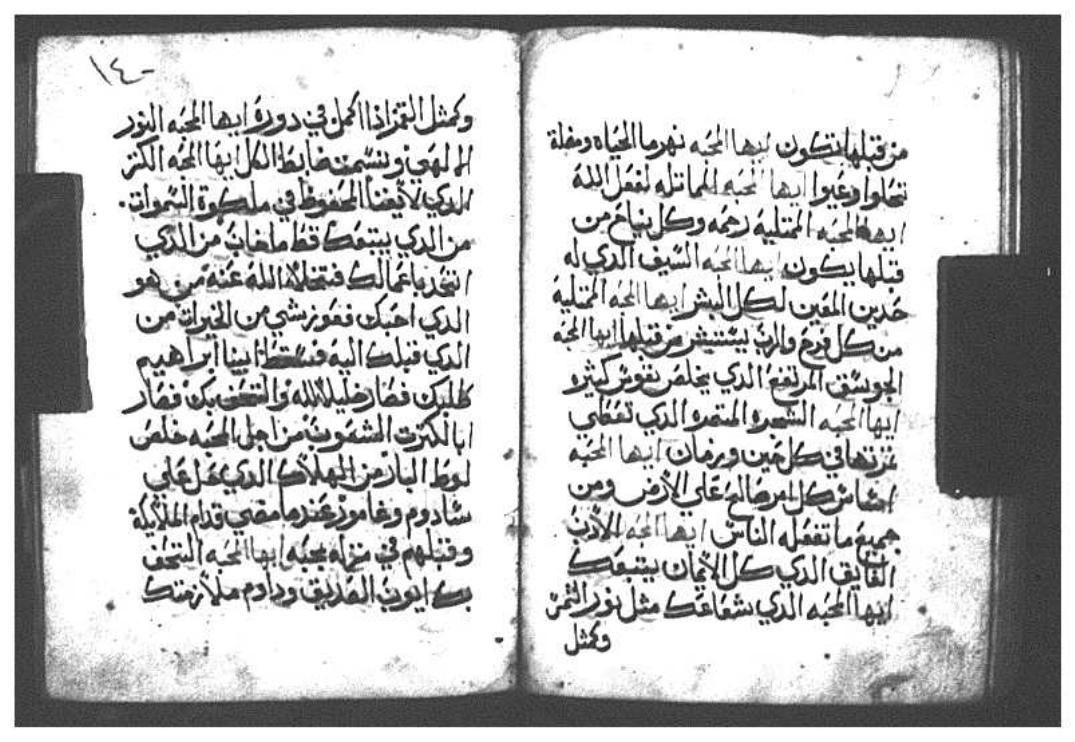 من قبلها يتكون ايها المحبه نهر ما الحياه ومغلة
نحلوا وعبوا ايها المحبه المماثله لفعل الله
ايها المحبه الممتليه رحمه وكل نياح من
قبلها يكون ايها المحبه السيف الدي له
حدين المعين لكل البشر ايها المحبه الممتليه
من كل فرح والرب يستبشر من قبلها ايها المحبه
الجوسق المرتفع الدي يخلص نفوس كثيره
ايها المحبه الشجره المتمره الدي تعطي
تمرتها في كل حين وزمان ايها المحبه
اساس كل امر صالح علي الارض ومن
جميع ما تفعله الناس ايها المحبه الادب
الفايق الدي كل الايمان يتبعك
ايها المحبه الدي شعاعك مثل نور الشمس
وكمثل
١٤٠
وكمثل القمر اذا اكمل في دورة ايها المحبه النور
الالهي ونسمت ضابط الكل ايها المحبه الكنز
الدي لا يفنا المحفوظ في ملكوة السموات.
من الدي يتبعك قط ما خاب من الدي
اتخد باعمالك فتخلا الله عنه من هو
الدي احبك فعوز شي من الخيرات من
الدي قبلك اليه فسقط ابينا ابراهيم
طلبك فصار خليلا لله والتحف بك فصار
ابا لكترت الشعوب من اجل المحبه خلص
لوط البار من الهلاك الدي حل علي
سادوم وغامور عندما مضي قدام الملايكة
وقبلهم في منزله بمحبه ايها المحبه التحف
بك ايوب الصديق وداوم ملازمتك